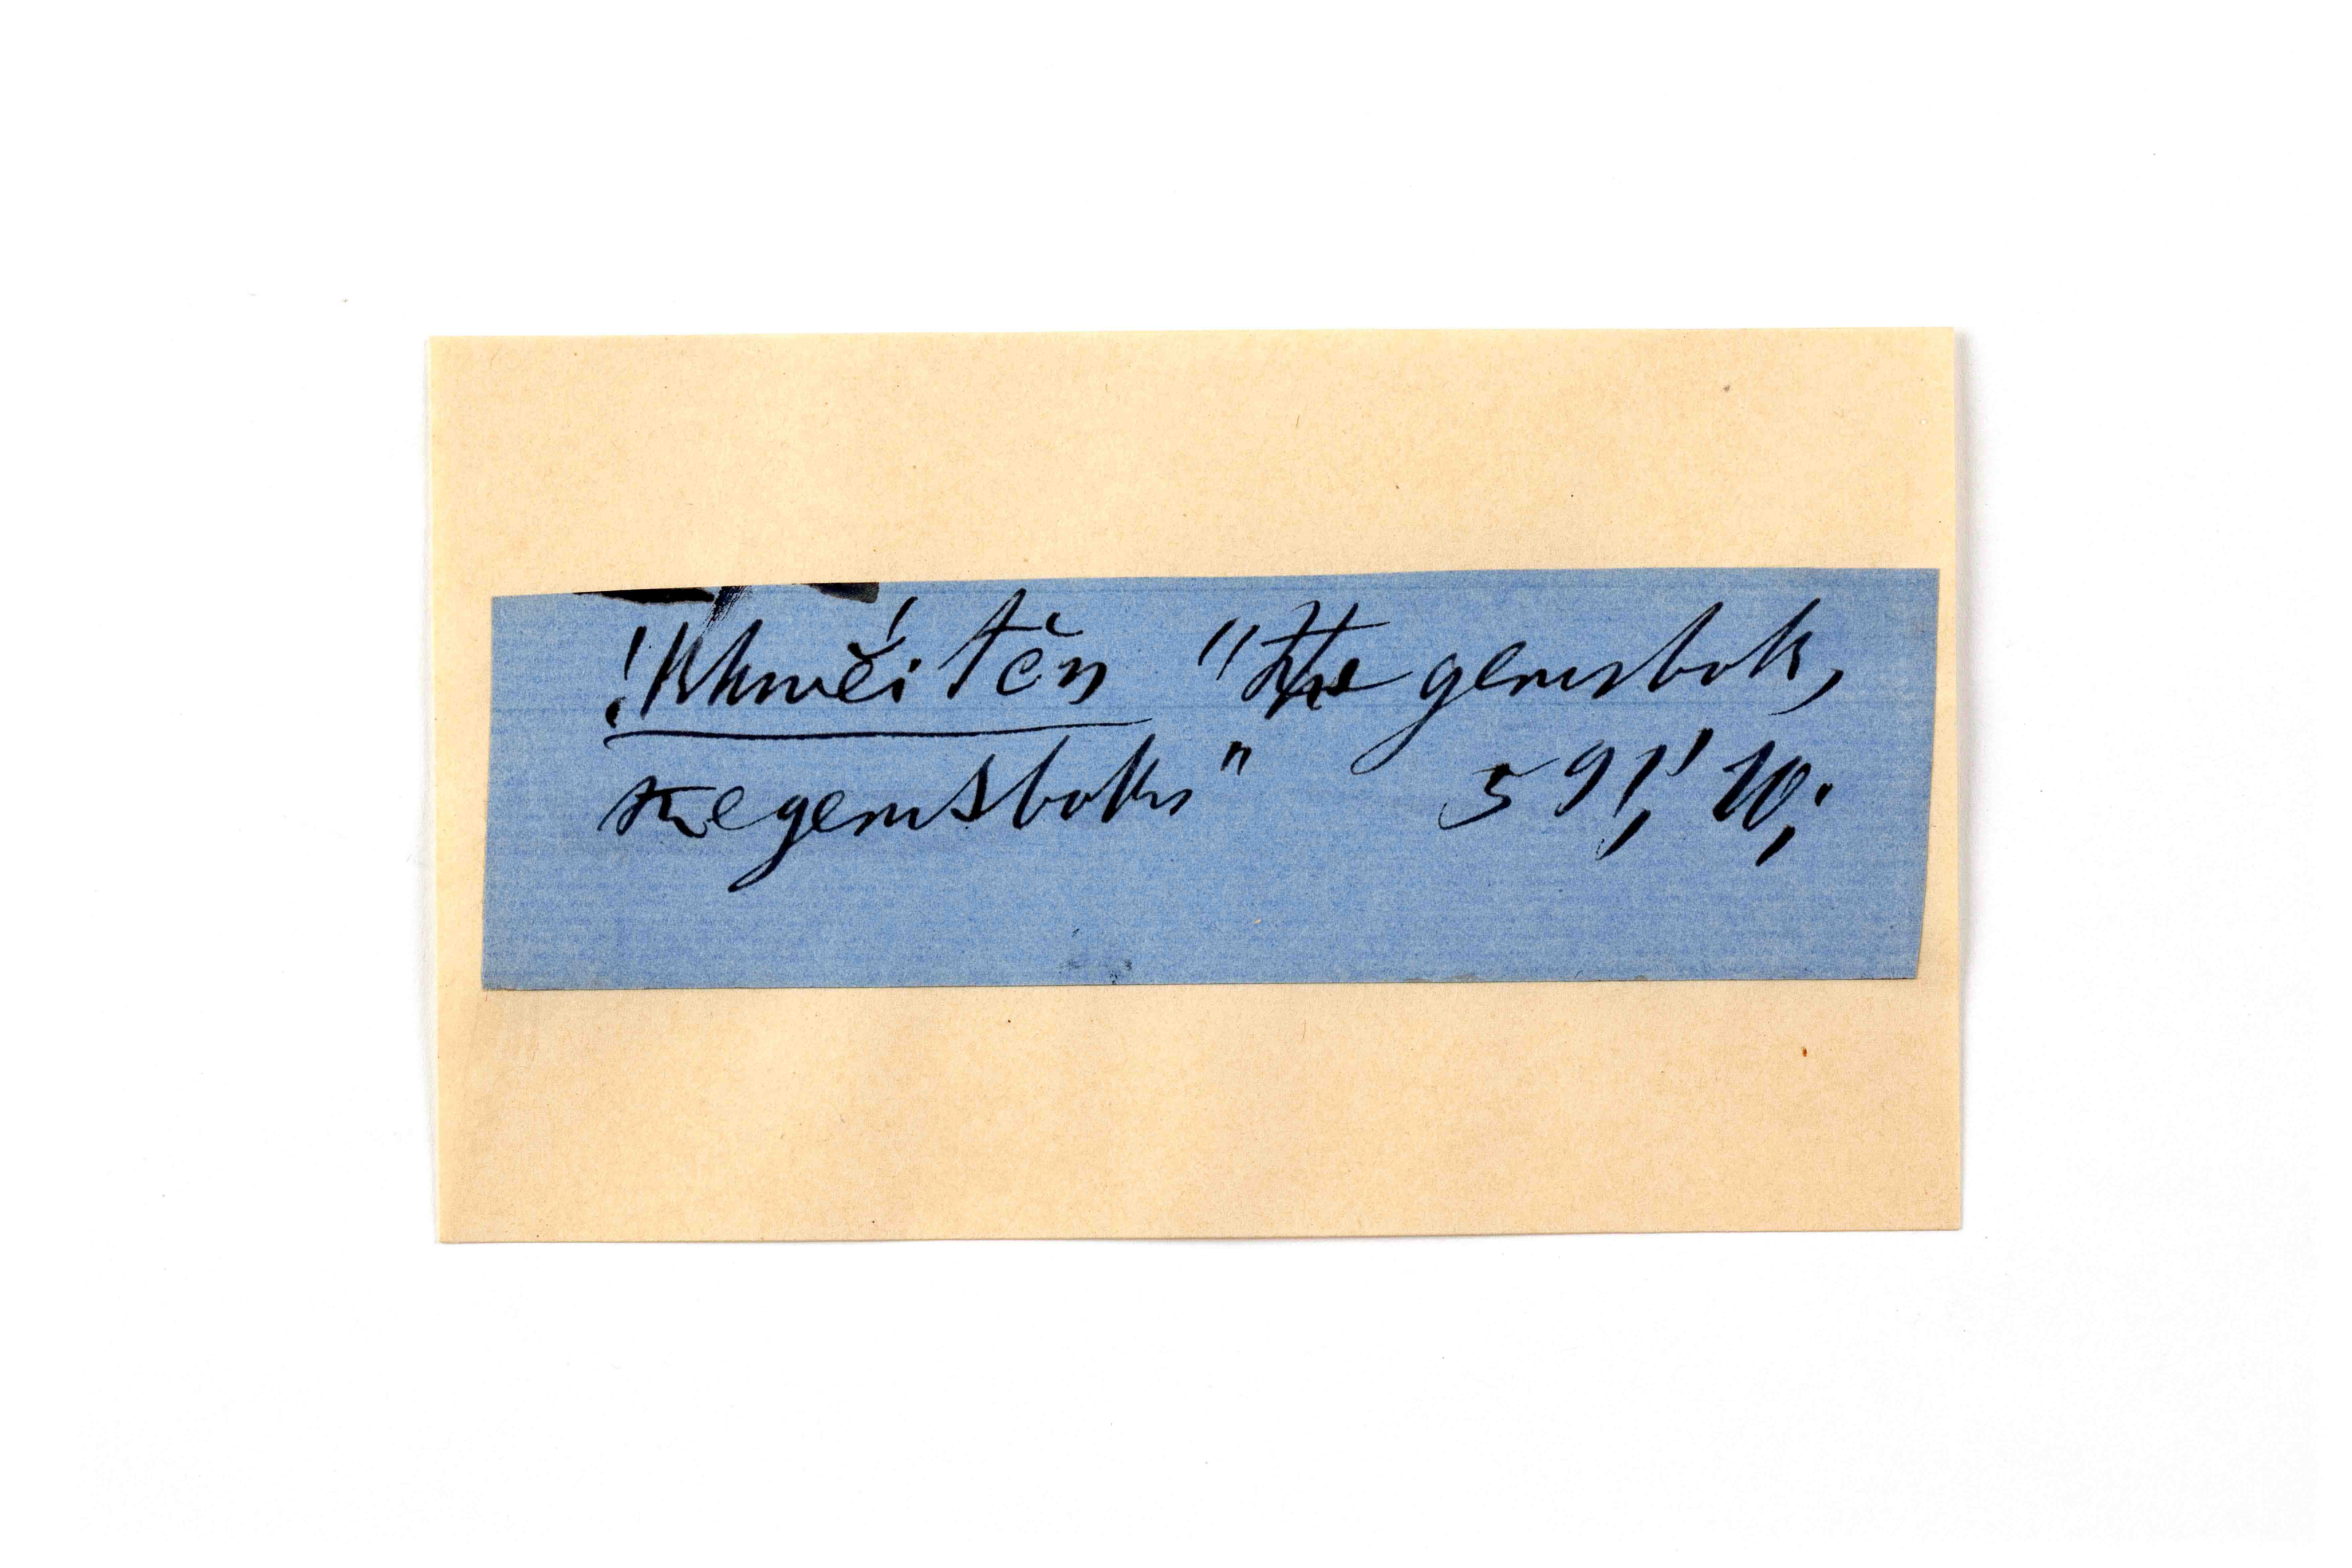 !khwĕ́i tĕn "The gemsbok,
the gemsboks" 591,' 10,'